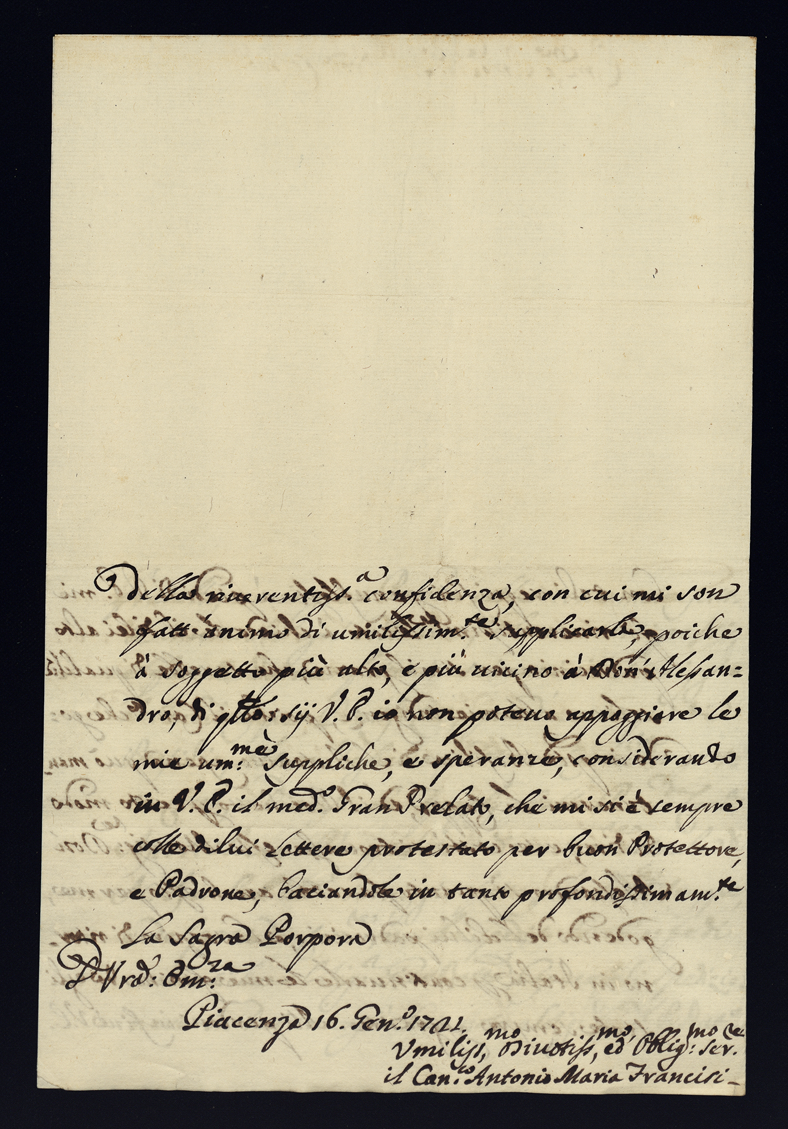 della riverentiss.a confidenza, con cui mi son
fatt' animo di umilissim.te supplicarla, poiche
à soggetto più alto, e più vicino à Don' Alessan=
dro, di qtto sij V. E. io non potevo appoggiare le
mie um.me suppliche, e speranze, considerando
in V. E. il med.o Gran Prelato, che mi si è sempre
colle di lui Lettere protestato per buon Protettore,
e Padrone, baciandole in tanto profondissimam.te
La Sagra Porpora
D Vrã: Em:za
Piacenza 16. Gen.o 1721.
Umiliss,mo Divotiss,mo ed' Oblig:mo Ser.re
il Can.to Antonio Maria Francisi